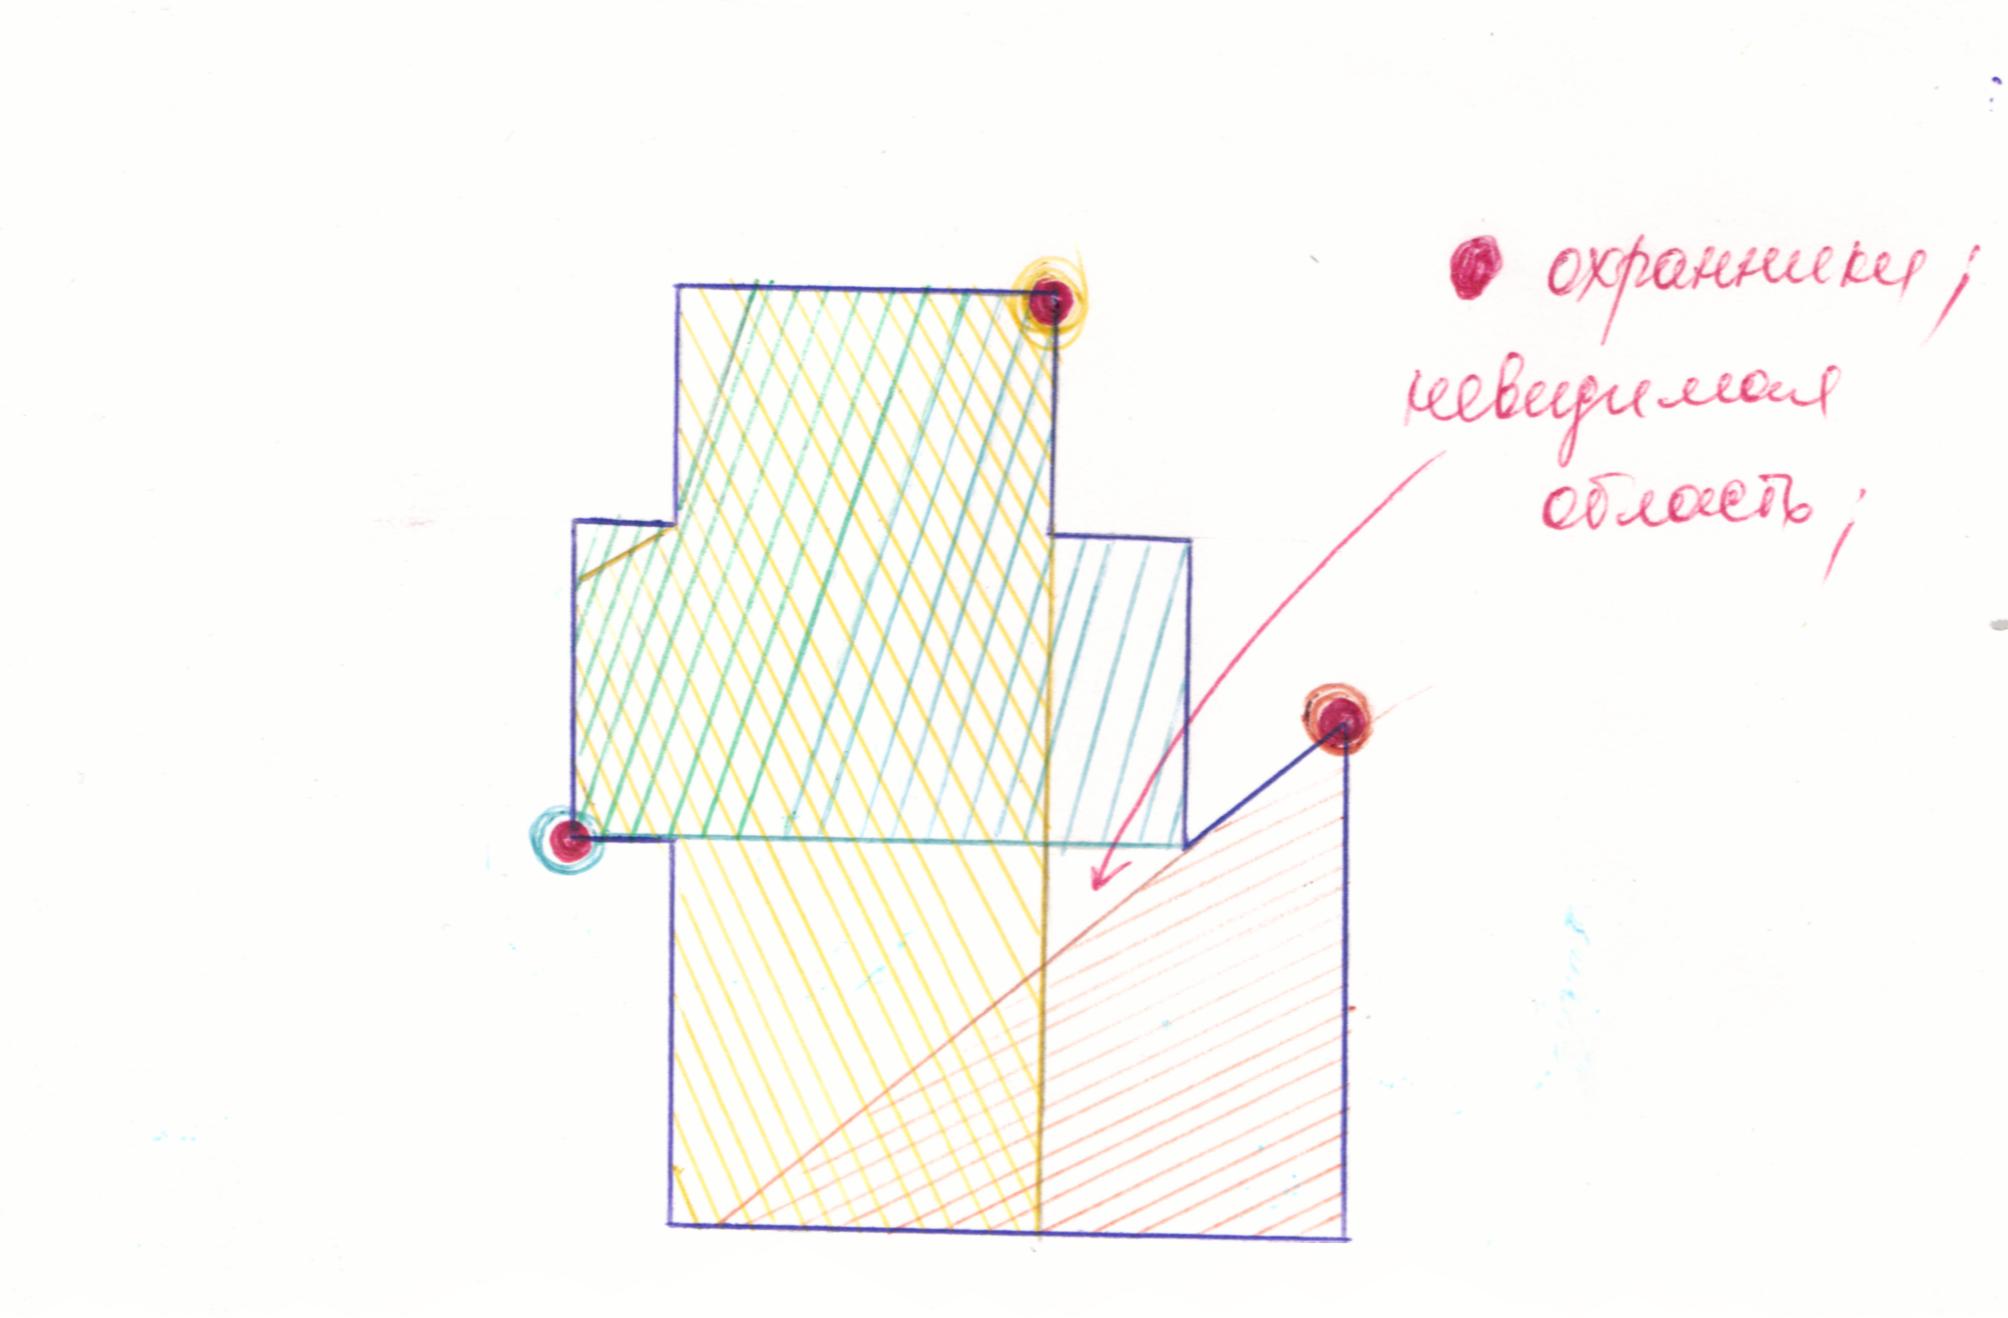 охранники;
невидимая
область;